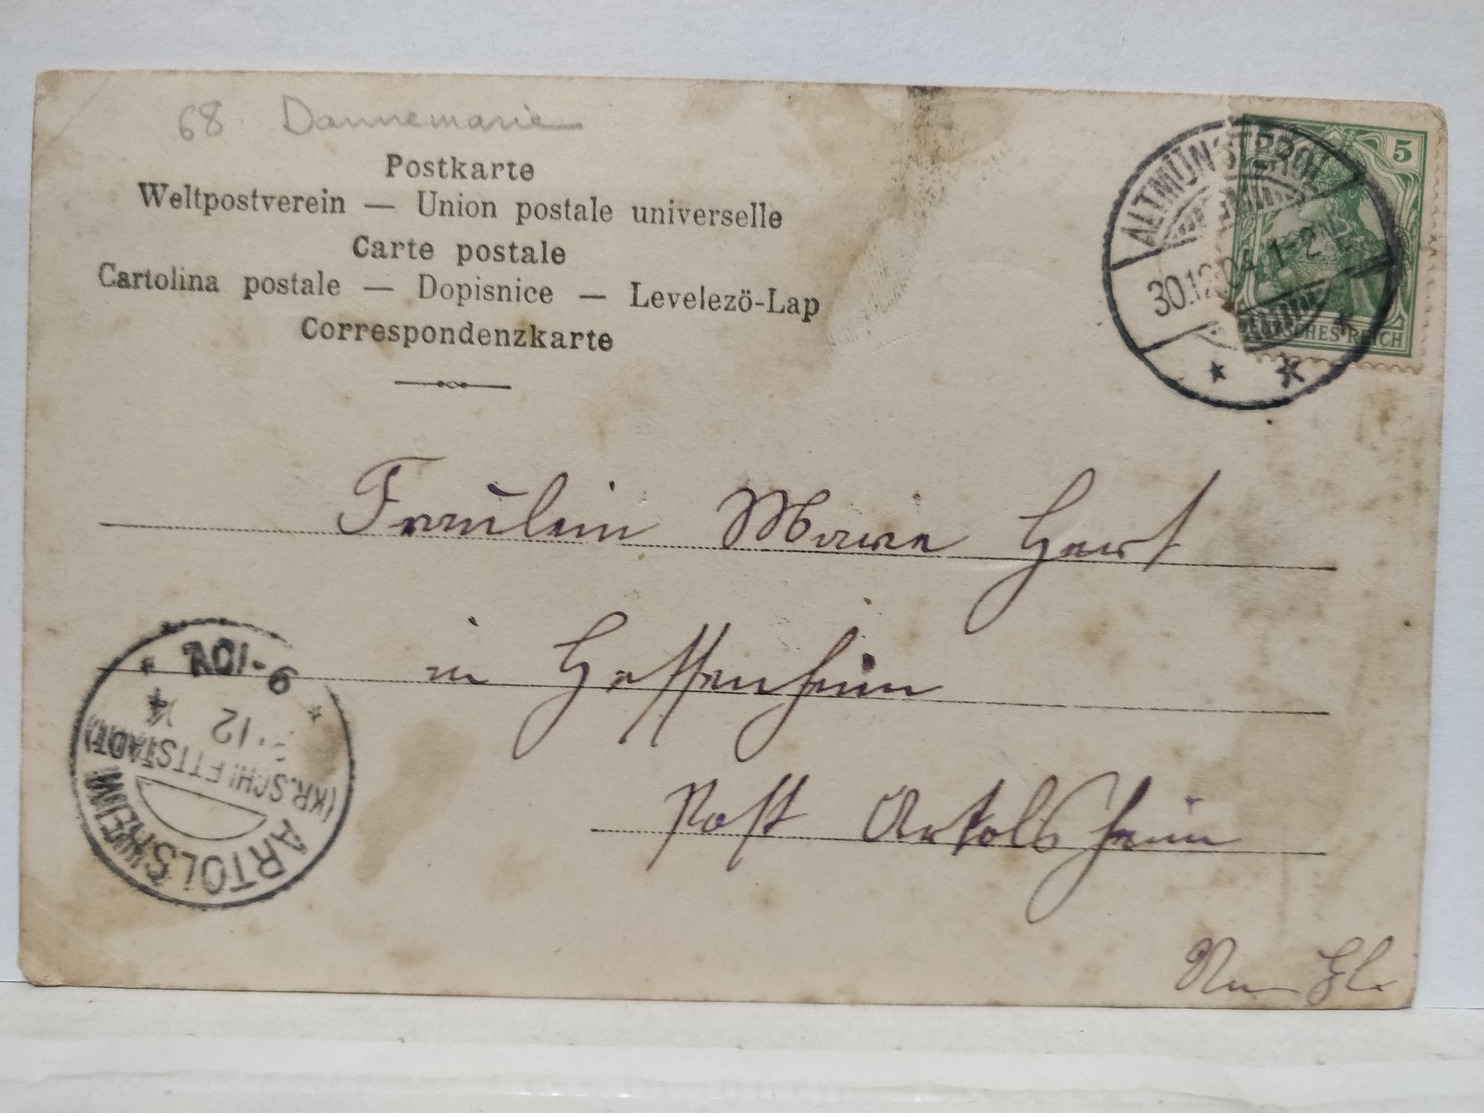 68 Dannemarie
Postkarte
Weltpostverein — Union postale universelle
Carte postale
Cartolina postale — Dopisnice — Levelezö-Lap
Correspondenzkarte
5
DEUTSCHES REICH
ALTMÜNSTEROL
30.12.04. 1-2N.
Fräulein Marie
in Hessenheim
Post Artolsheim
ARTOLSHEIM
(KR. SCHLETTSTADT)
12
9-10V.